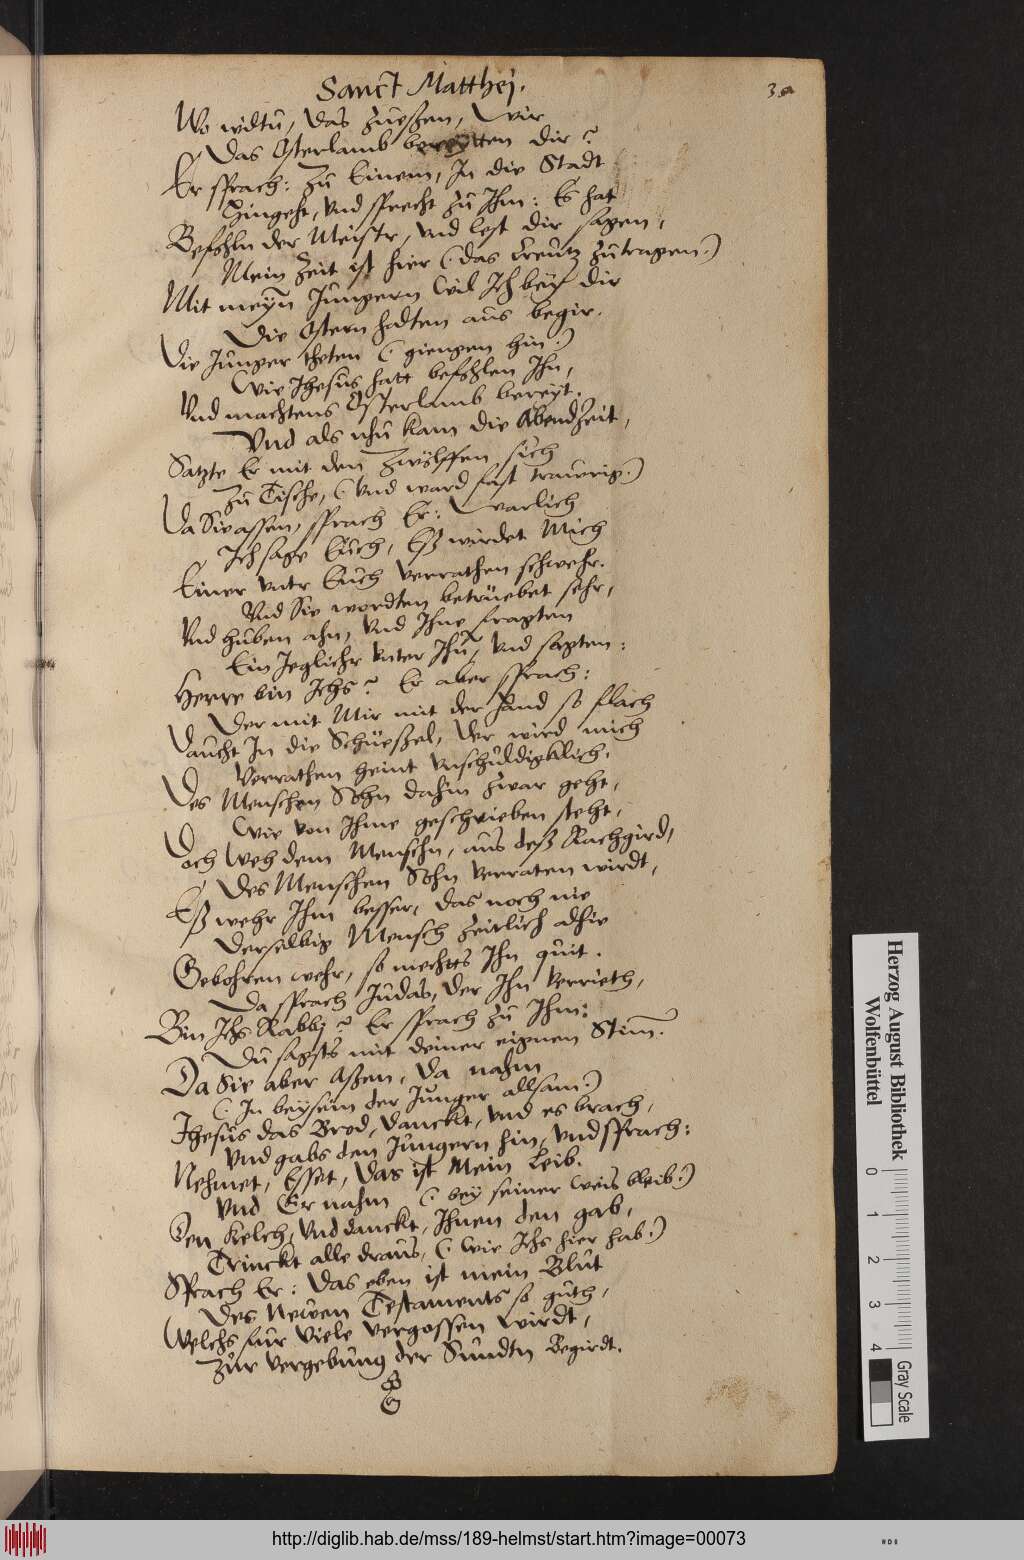 Sanct Matthej.
30
Wo wiltu, das zueßen, Wir
Das Osterlamb bereytten dir?
Er sprach: Zu Einem, In die Stadt
Hingeht, Vnd sprecht zu Ihm: Es hat
Befohln der Meistr, vnd lest dir sagen,
Mein Zeit ist hier (: das Creutz zutragen:)
Mit meyn Jüngern Wil Ich bey dir
Die Ostern halten aus begir.
Die Junger theten (: giengen hin:)
Wie Jhesus hatt befohlen Ihn,
Vnd machtens Osterlamb bereyt.
Vnd als nhu kam die Abendzeit,
Satzte Er mit den Zwölffen sich
Zu Tische, (: Vnd ward fast traurig:)
Da Sie assen, sprach Er: Warlich
Ich sage Euch, Eß wirdet Mich
Einer vntr Euch verrathen schwehr.
Vnd Sie wordten betrüebet sehr,
Vnd huben ahn, Vnd Ihne fragten
Ein Jeglichr Vnter Ihn, Vnd sagten:
Herre bin Ichs? Er aber sprach:
Der mit Mir mit der Hand so flach
Taucht In die Schüeßel, Der wird mich
Verrathen heint Vnschuldigklich.
Des Menschen Sohn dahin zwar geht,
Wie von Ihme geschrieben steht,
Doch Weh dem Menschn, aus deß Rachgird,
Des Menschen Sohn Verraten wirdt,
Eß wehr Ihm besser, das noch nie
Derselbig Mensch Zeitlich alhie
Gebohren wehr, so mechtts Ihn quit.
Da sprach Judas, der Ihn Verrieth,
Bin Ichs Rabbj? Er sprach zu Ihm:
Du sagsts mit deiner eignen Stim.
Da Sie aber Aßen, Da nahm
(: In beysein der Junger allsam:)
Jhesus das Brod, danckt, Vnd es brach,
Vnd gabs den Jüngern hin, Vnd sprach:
Nehmet, Esset, Das ist Mein Leib.
Vnd Er nahm (: bey seiner Weis bleib:)
Den Kelch, Vnd danckt, Ihnen den gab,
Trinckt alle draus, (: Wie Ichs hier hab:)
Sprach Er: Das eben ist mein Blut
Des Newen Testaments so guth,
Welchs fur Viele vergossen Wirdt,
Zur vergebung der Sundtn Begirdt.
Herzog August Bibliothek
Wolfenbüttel
0 1 2 3 4
Gray Scale
http://diglib.hab.de/mss/189-helmst/start.htm?image=00073